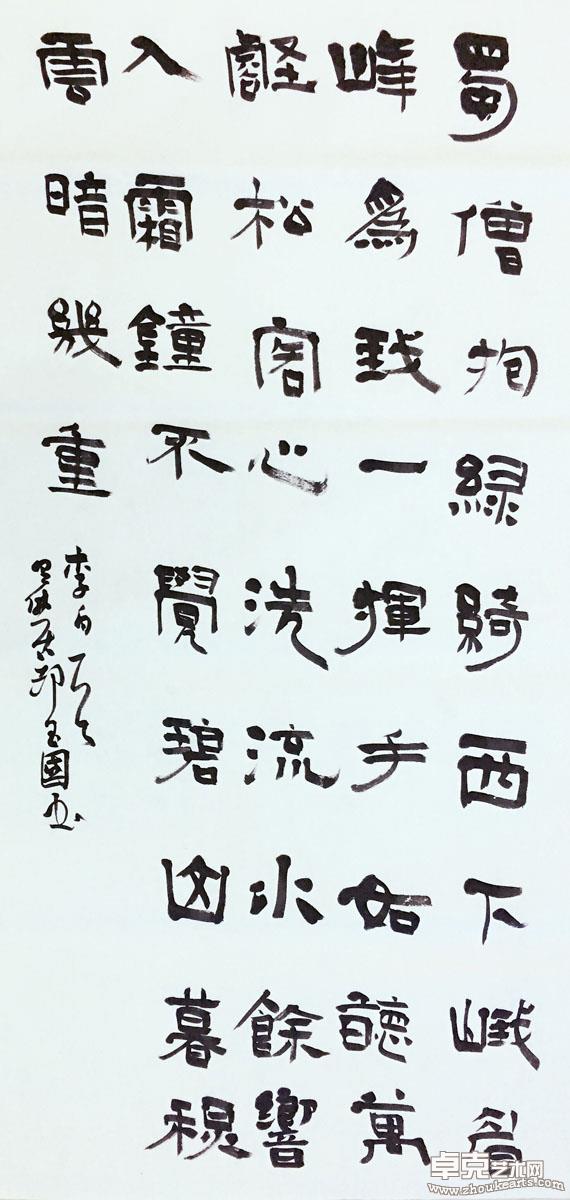 蜀僧抱綠綺西下峨眉
峰為我一揮手如聽萬
壑松客心洗流水餘響
入霜鐘不覺碧山暮秋
雲暗幾重
李白
玉國書
卓克艺术网
www.zhoukearts.com